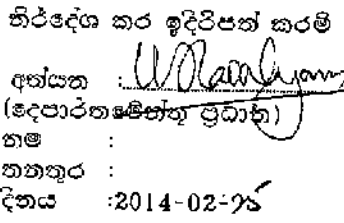 නිර්දේශ කර ඉදිරිපත් කරමි
අත්සන :
(දෙපාර්තමේන්තු ප්‍රධාන)
නම :
තනතුර :
දිනය :2014-02-25